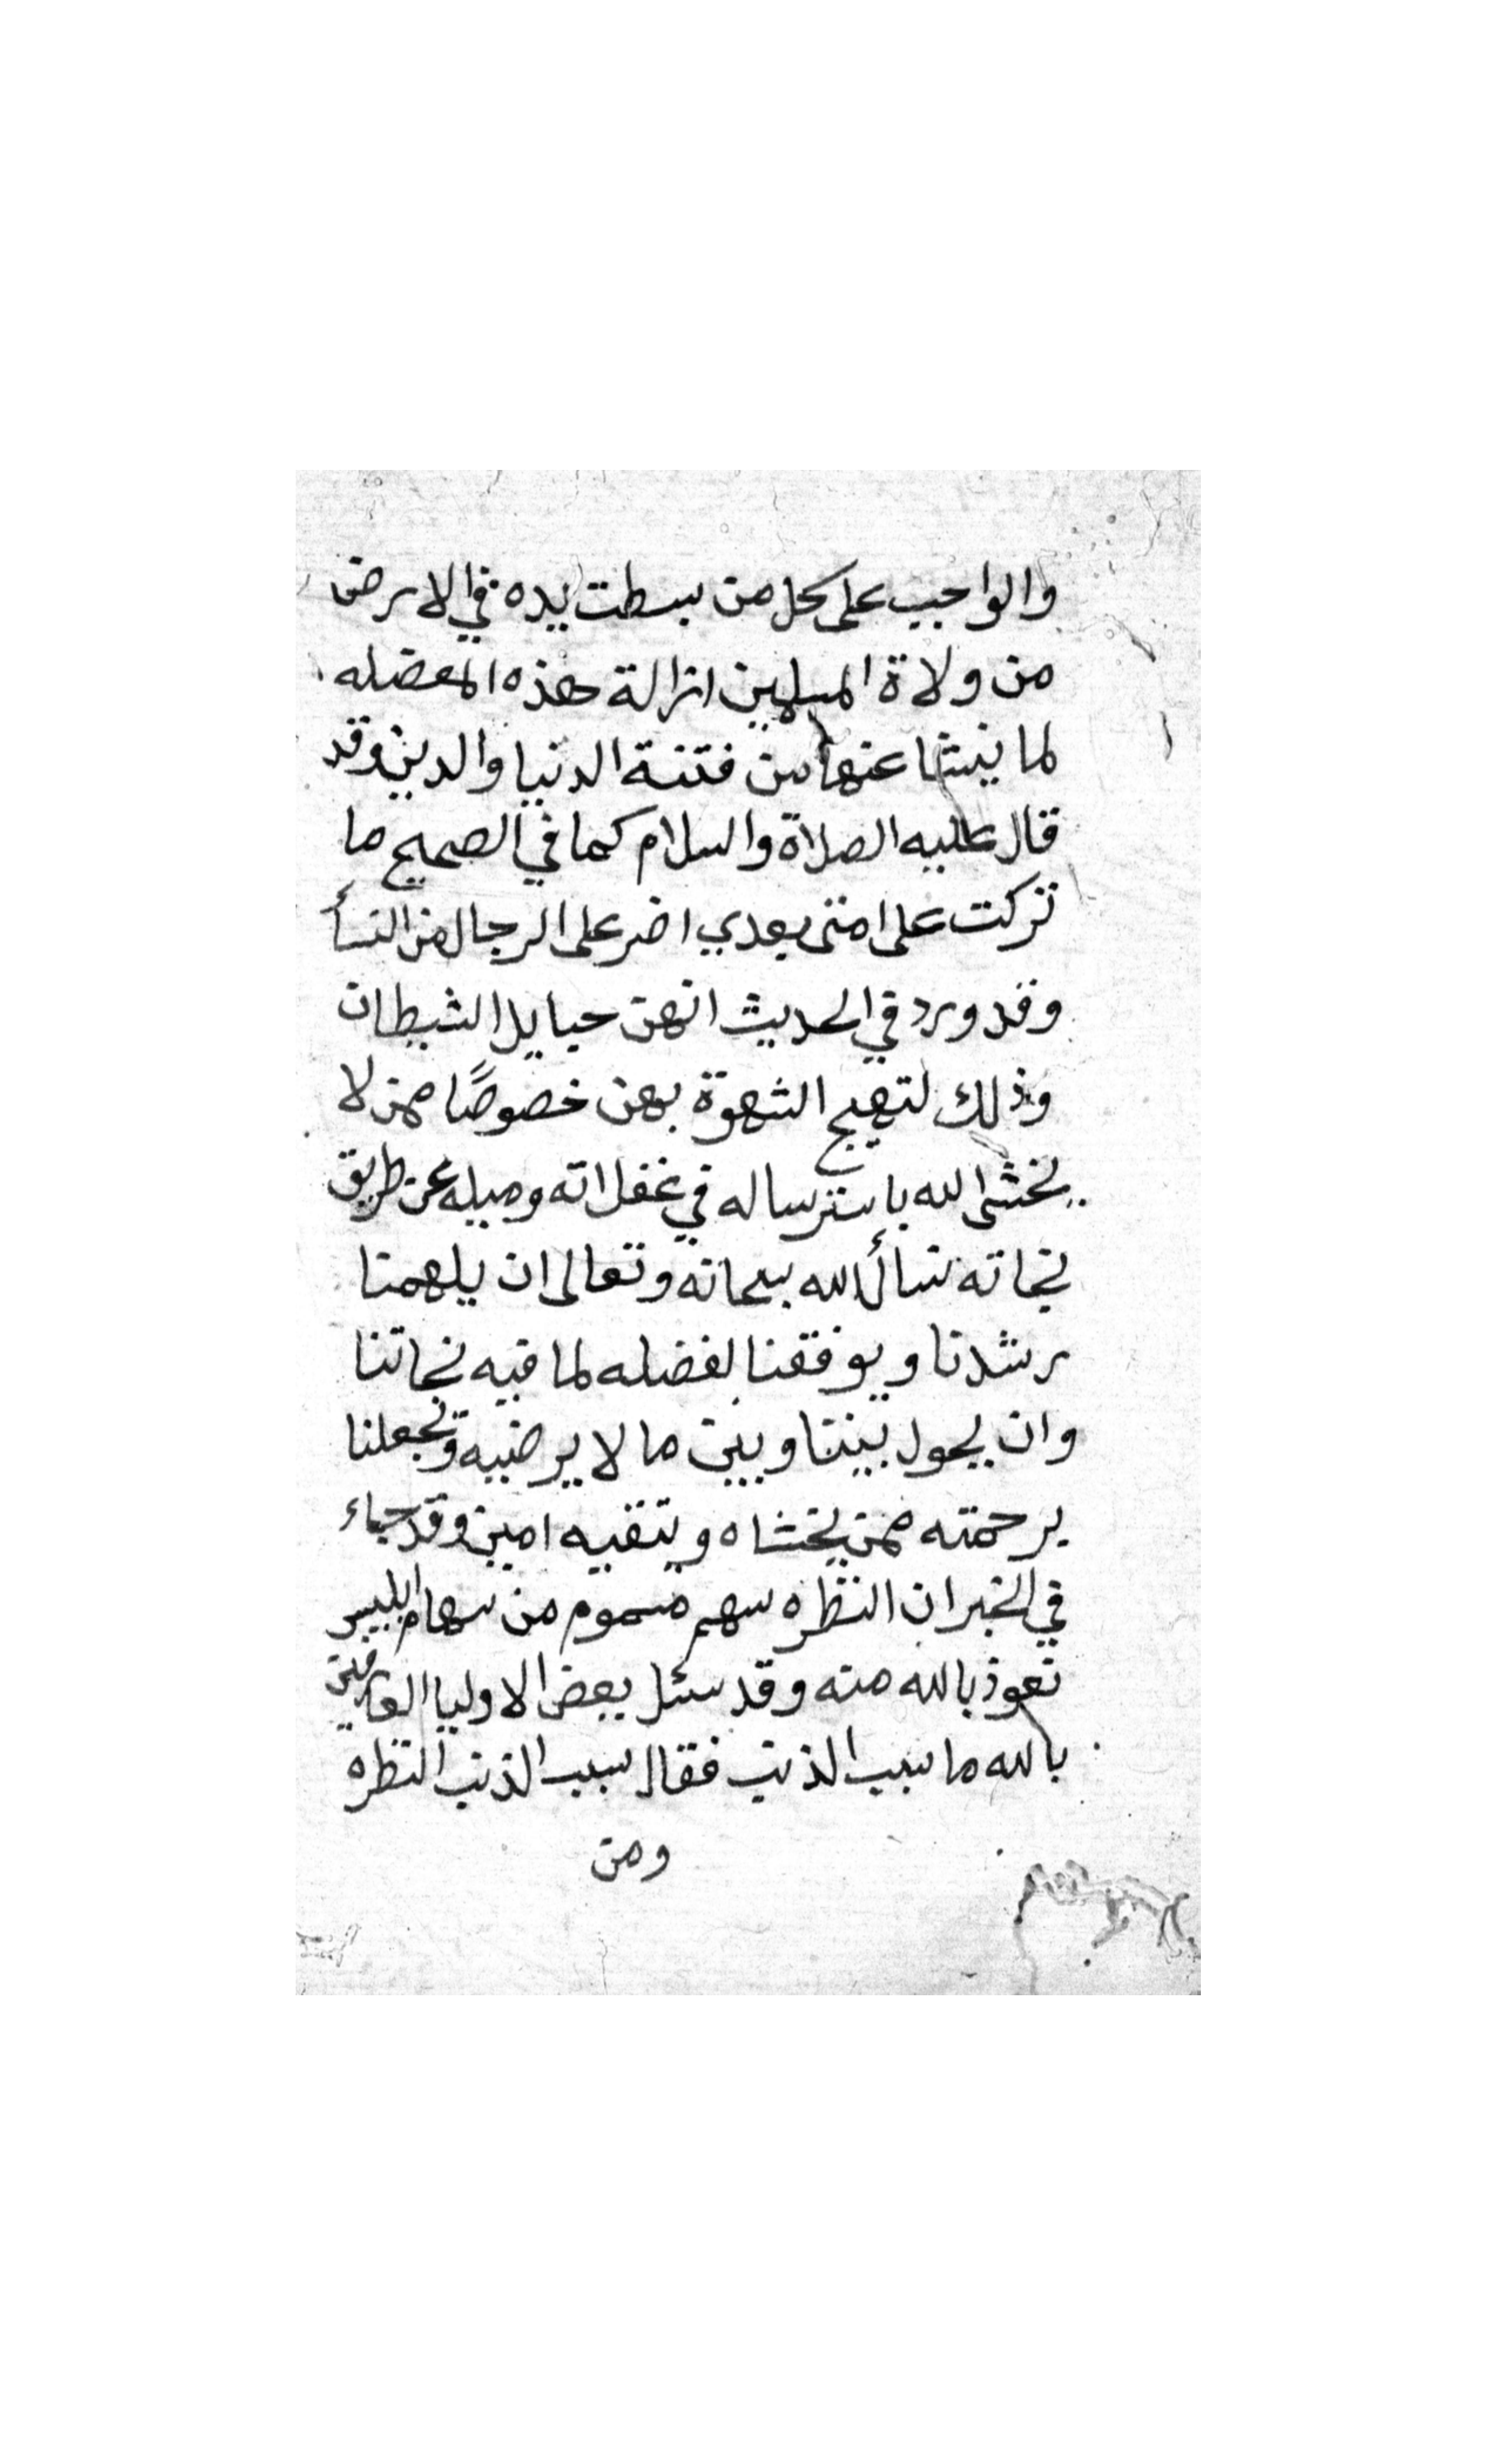 والواجب على كل من بسطت يده في الارض
من ولاة المسلمين ازالة هذه المعضله
لما ينشا عنها من فتنة الدنيا والدين وقد
قال عليه الصلاة والسلام كما في الصحيح ما
تركت على امتى بعدي اضر على الرجال من النسأ
وقد ورد في الحديث انهن حبايل الشيطان
وذلك لتهيج الشهوة بهن خصوصًا ممن لا
يخشى الله باسترساله في غفلاته وميله عن طريق
نجاته نسأل الله سبحانه وتعالى ان يلهمنا
رشدنا ويوفقنا بفضله لما فيه نجاتنا
وان يحول بيننا وبين ما لا يرضيه ويجعلنا
برحمته ممن يخشاه ويتقيه امين وقد جاء
في الخبر ان النظره سهم مسموم من سهام ابليس
نعوذ بالله منه وقد سئل بعض الاوليا العارفين
بالله ما سبب الذنب فقال سبب الذنب النظره
ومن